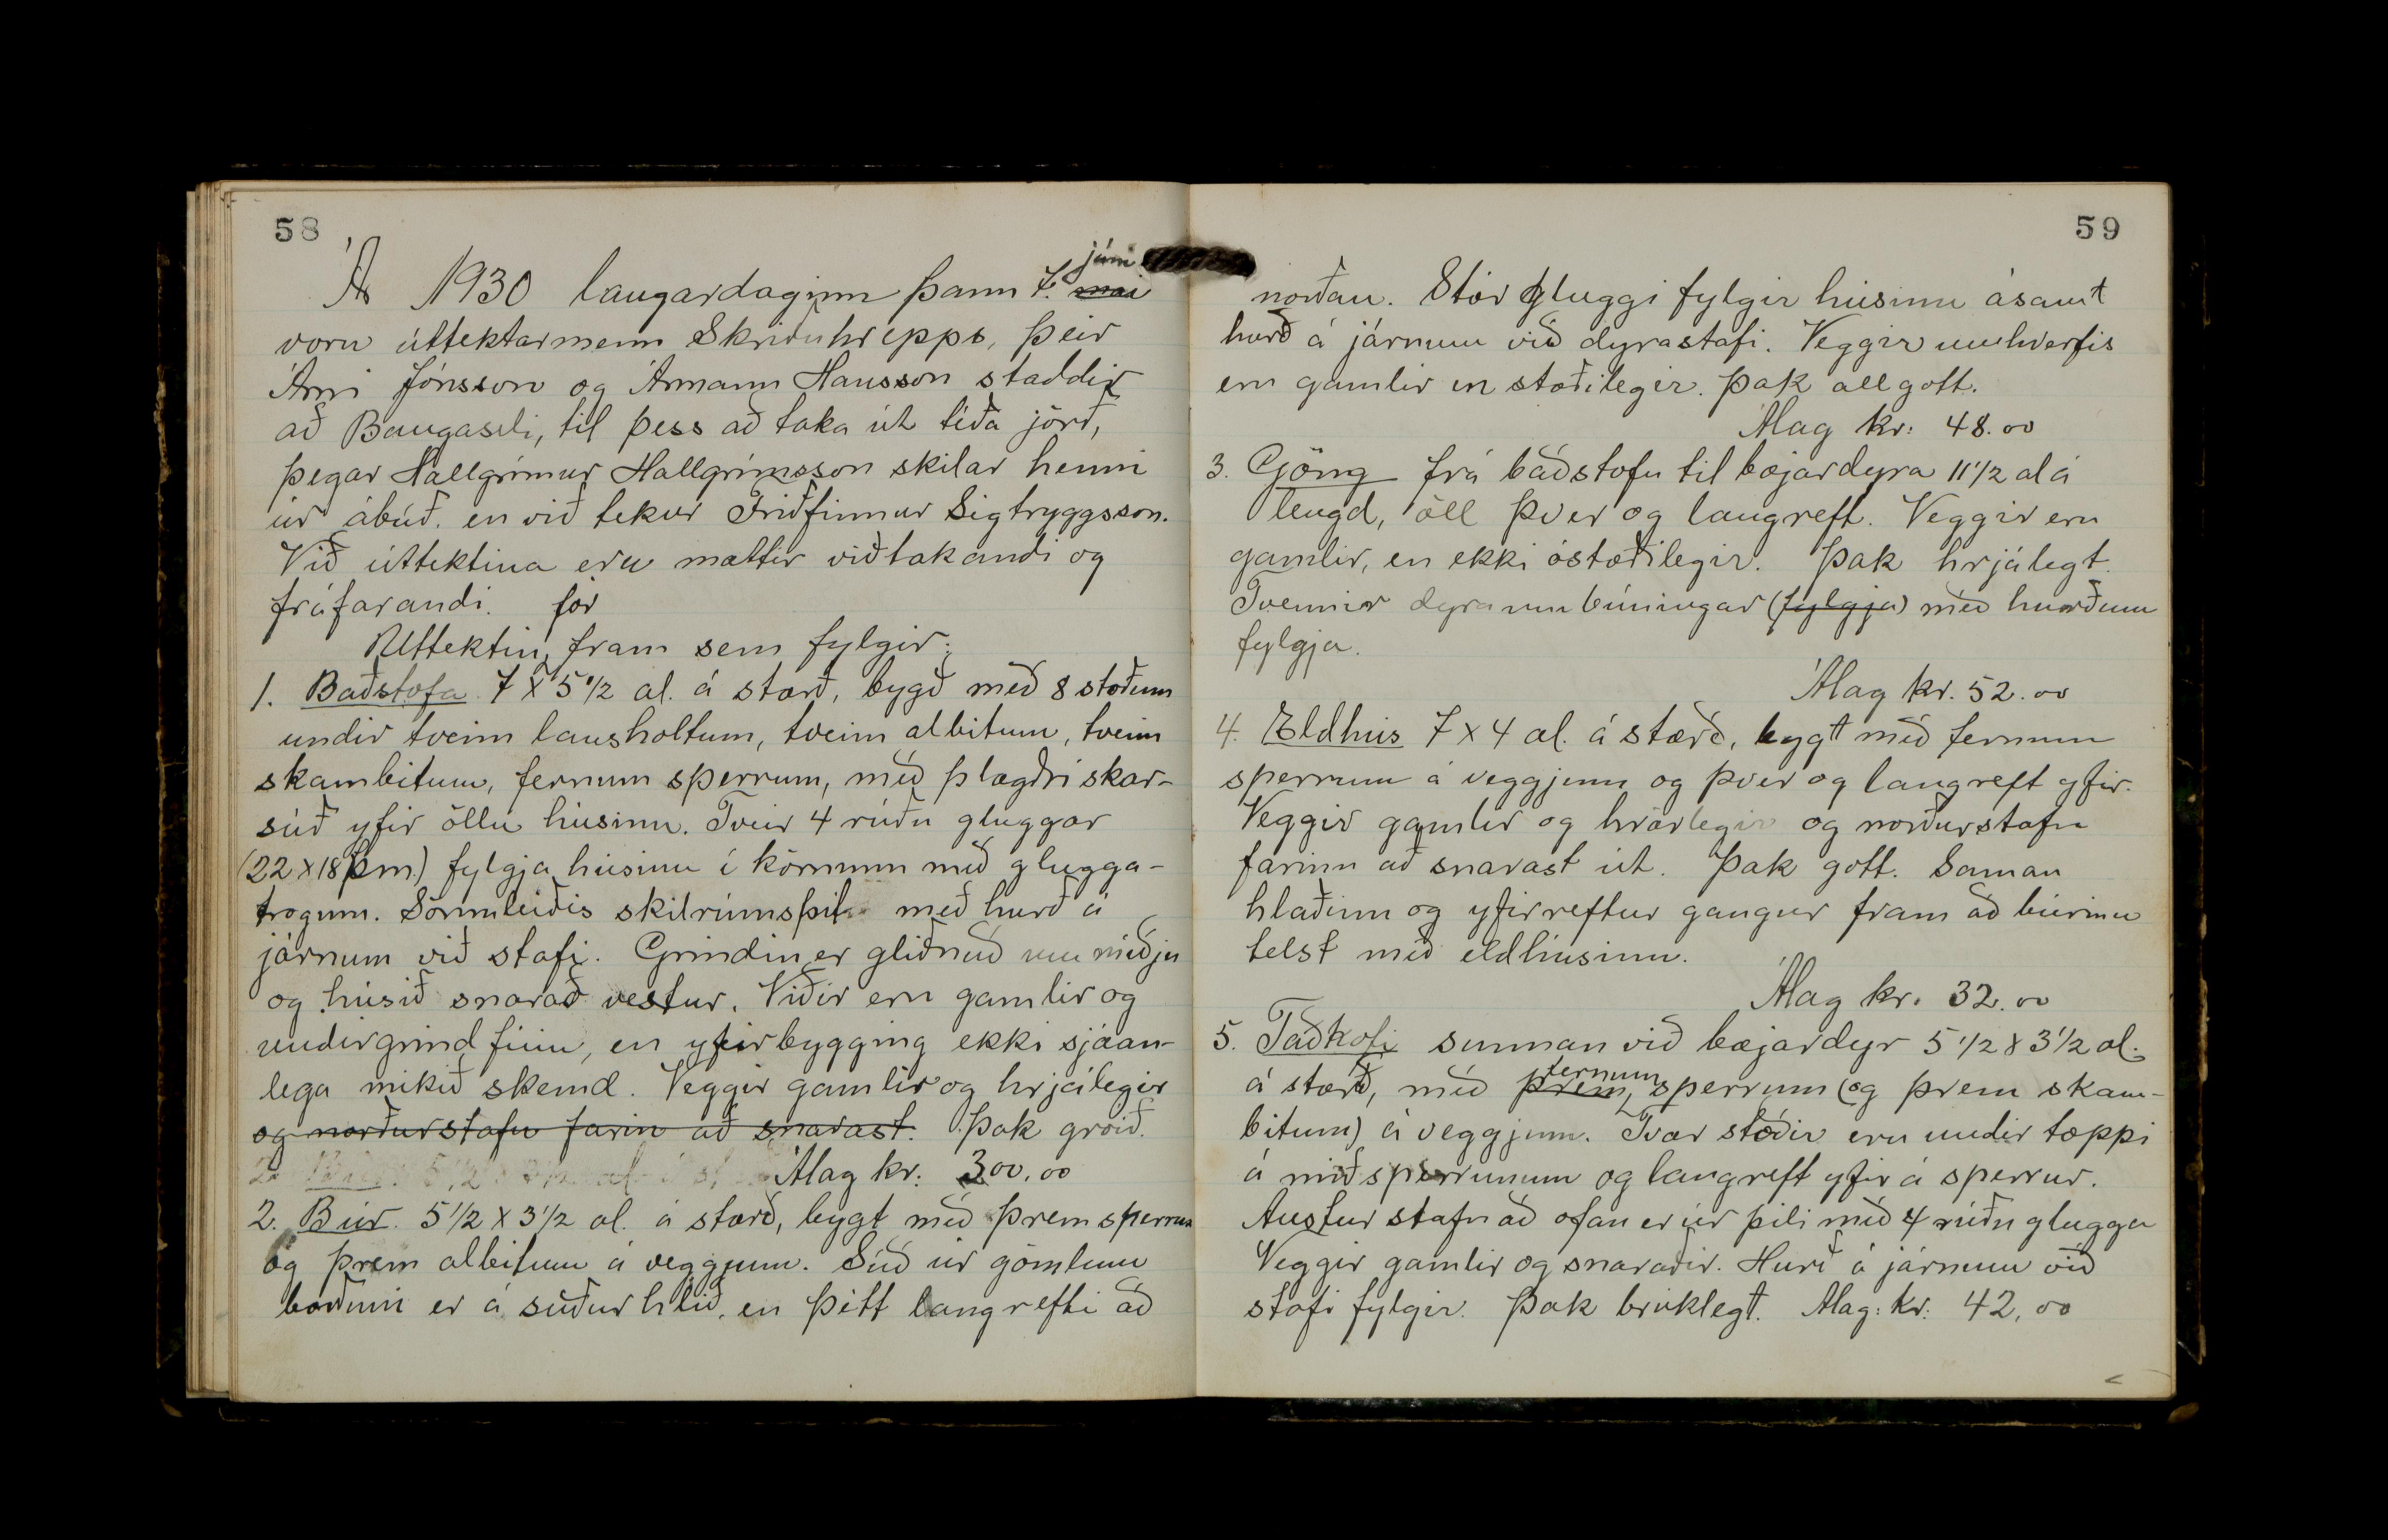 58
Ár 1930 laugardaginn þann 7. júní mai
voru úttektarmenn Skriðuhrepps, þeir
Árni Jónsson og Ármann Hansson staddir
að Baugaseli, til þess að taka út téða jörð,
þegar Hallgrímur Hallgrímsson skilar henni
úr ábúð. en við tekur Friðfinnur Sigtryggsson.
Við úttektina eru mættir viðtakandi og
fráfarandi.
Úttektin fór fram sem fylgir:
1. Baðstofa 7 x 5 1/2 al. á stærð, bygð með 8 stoðum
undir tveim lausholtum, tveim albitum, tveim
skambitum, fernum sperrum, með plægðri skar-
súð yfir öllu húsinu. Tveir 4 rúðu gluggar
(22 x 18 þm) fylgja húsinu í körmum með glugga-
trogum. Sömuleiðis skilrúmsþil með hurð á
járnum við stafi. Grindin er gliðnuð um miðju
og húsið snarað vestur. Viðir eru gamlir og
undirgrind fúin, en yfirbygging ekki sjáan-
lega mikið skemd. Veggir gamlir og hrjálegir
og norðurstafn farin að snarast. Þak gróið.
Álag kr: 300.00
2. Búr. 5 1/2 x 3 1/2 al. á stærð, bygt með þrem sperrum
og þrem albitum á veggjum. Súð úr gömlum
borðum er á suðurhlið, en þétt langrefti að
59
norðan. Stór gluggi fylgir húsinu ásamt
hurð á járnum við dyrastafi. Veggir umhverfis
eru gamlir en stæðilegir. Þak allgott.
Álag kr: 48.00
3. Göng frá baðstofu til bæjardyra 11 1/2 al á
lengd, öll þver og langreft. Veggir eru
gamlir, en ekki óstæðilegir. Þak hrjálegt.
Tvennir dyraumbúningar (fylgja) með hurðum
fylgja.
Álag kr. 52.00
4. Eldhús 7 x 4 al. á stærð, bygt með fernum
sperrum á veggjum og þver og langreft yfir.
Veggir gamlir og hrörlegir og norðurstafn
farinn að snarast út. Þak gott. Saman
hlaðinn og yfirreftur gangur fram að búrinu
telst með eldhúsinu.
Álag kr. 32.00
5. Taðkofi sunnan við bæjardyr 5 1/2 x 3 1/2 al.
á stærð, með þrem fernum sperrum (og þrem skam-
bitum) á veggjum. Tvær stoðir eru undir tæppi
á miðsperrunum og langreft yfir á sperrur.
Austurstafn að ofan er úr þili með 4 rúðu glugga
Veggir gamlir og snaraðir. Hurð á járnum við
stafi fylgir. Þak brúklegt. Álag: kr: 42,00